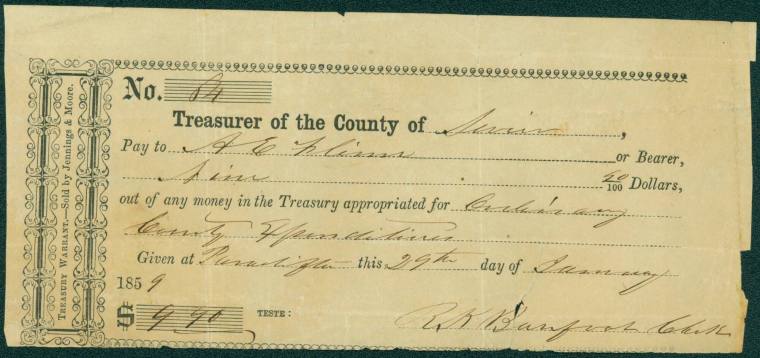 TREASURY WARRANT.—Sold by Jennings & Moore.
No. 84
Treasurer of the County of
Pay to A E or Bearer,
Nine 90/100 Dollars,
out of any money in the Treasury appropriated for Ordinary
County Expenditures
Given at this 29th day of January
1859
$ 9 90 TESTE: R. K. Clerk